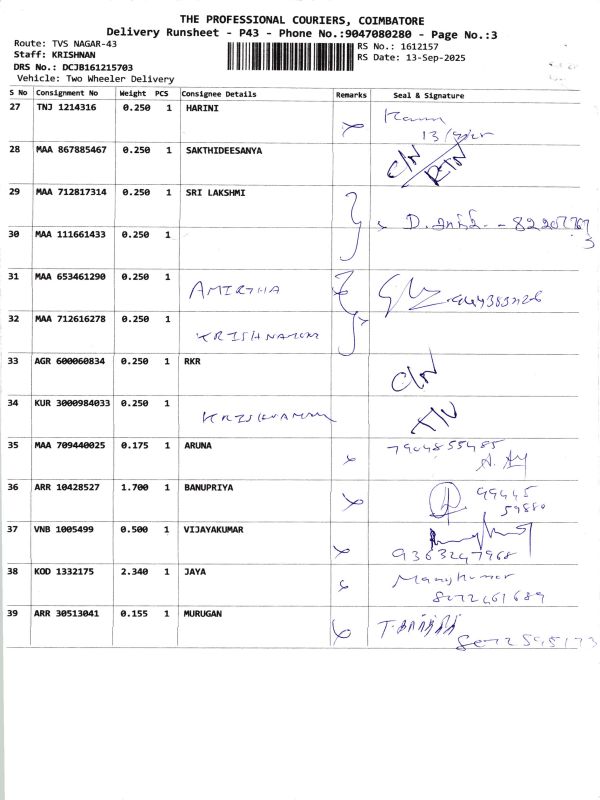 THE PROFESSIONAL COURIERS, COIMBATORE
Delivery Runsheet - P43 - Phone No.:9047080280 - Page No.:3
Route: TVS NAGAR-43
Staff: KRISHNAN
DRS No.: DCJB161215703
Vehicle: Two Wheeler Delivery
RS No.: 1612157
RS Date: 13-Sep-2025
S No Consignment No Weight PCS Consignee Details Remarks Seal & Signature
27 TNJ 1214316 0.250 1 HARINI
28 MAA 867885467 0.250 1 SAKTHIDEESANYA C/N
29 MAA 712817314 0.250 1 SRI LAKSHMI
30 MAA 111661433 0.250 1
31 MAA 653461290 0.250 1 AMIRTHA
32 MAA 712616278 0.250 1
33 AGR 600060834 0.250 1 RKR C/N
34 KUR 3000984033 0.250 1
35 MAA 709440025 0.175 1 ARUNA 7904855485
36 ARR 10428527 1.700 1 BANUPRIYA 99445
59880
37 VNB 1005499 0.500 1 VIJAYAKUMAR
9363247968
38 KOD 1332175 2.340 1 JAYA
8072461689
39 ARR 30513041 0.155 1 MURUGAN
8072595173